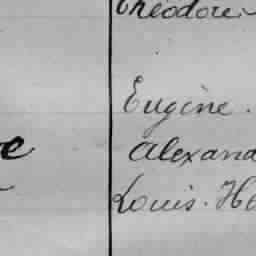 Theodore
Eugène.
Alexand
Louis. He